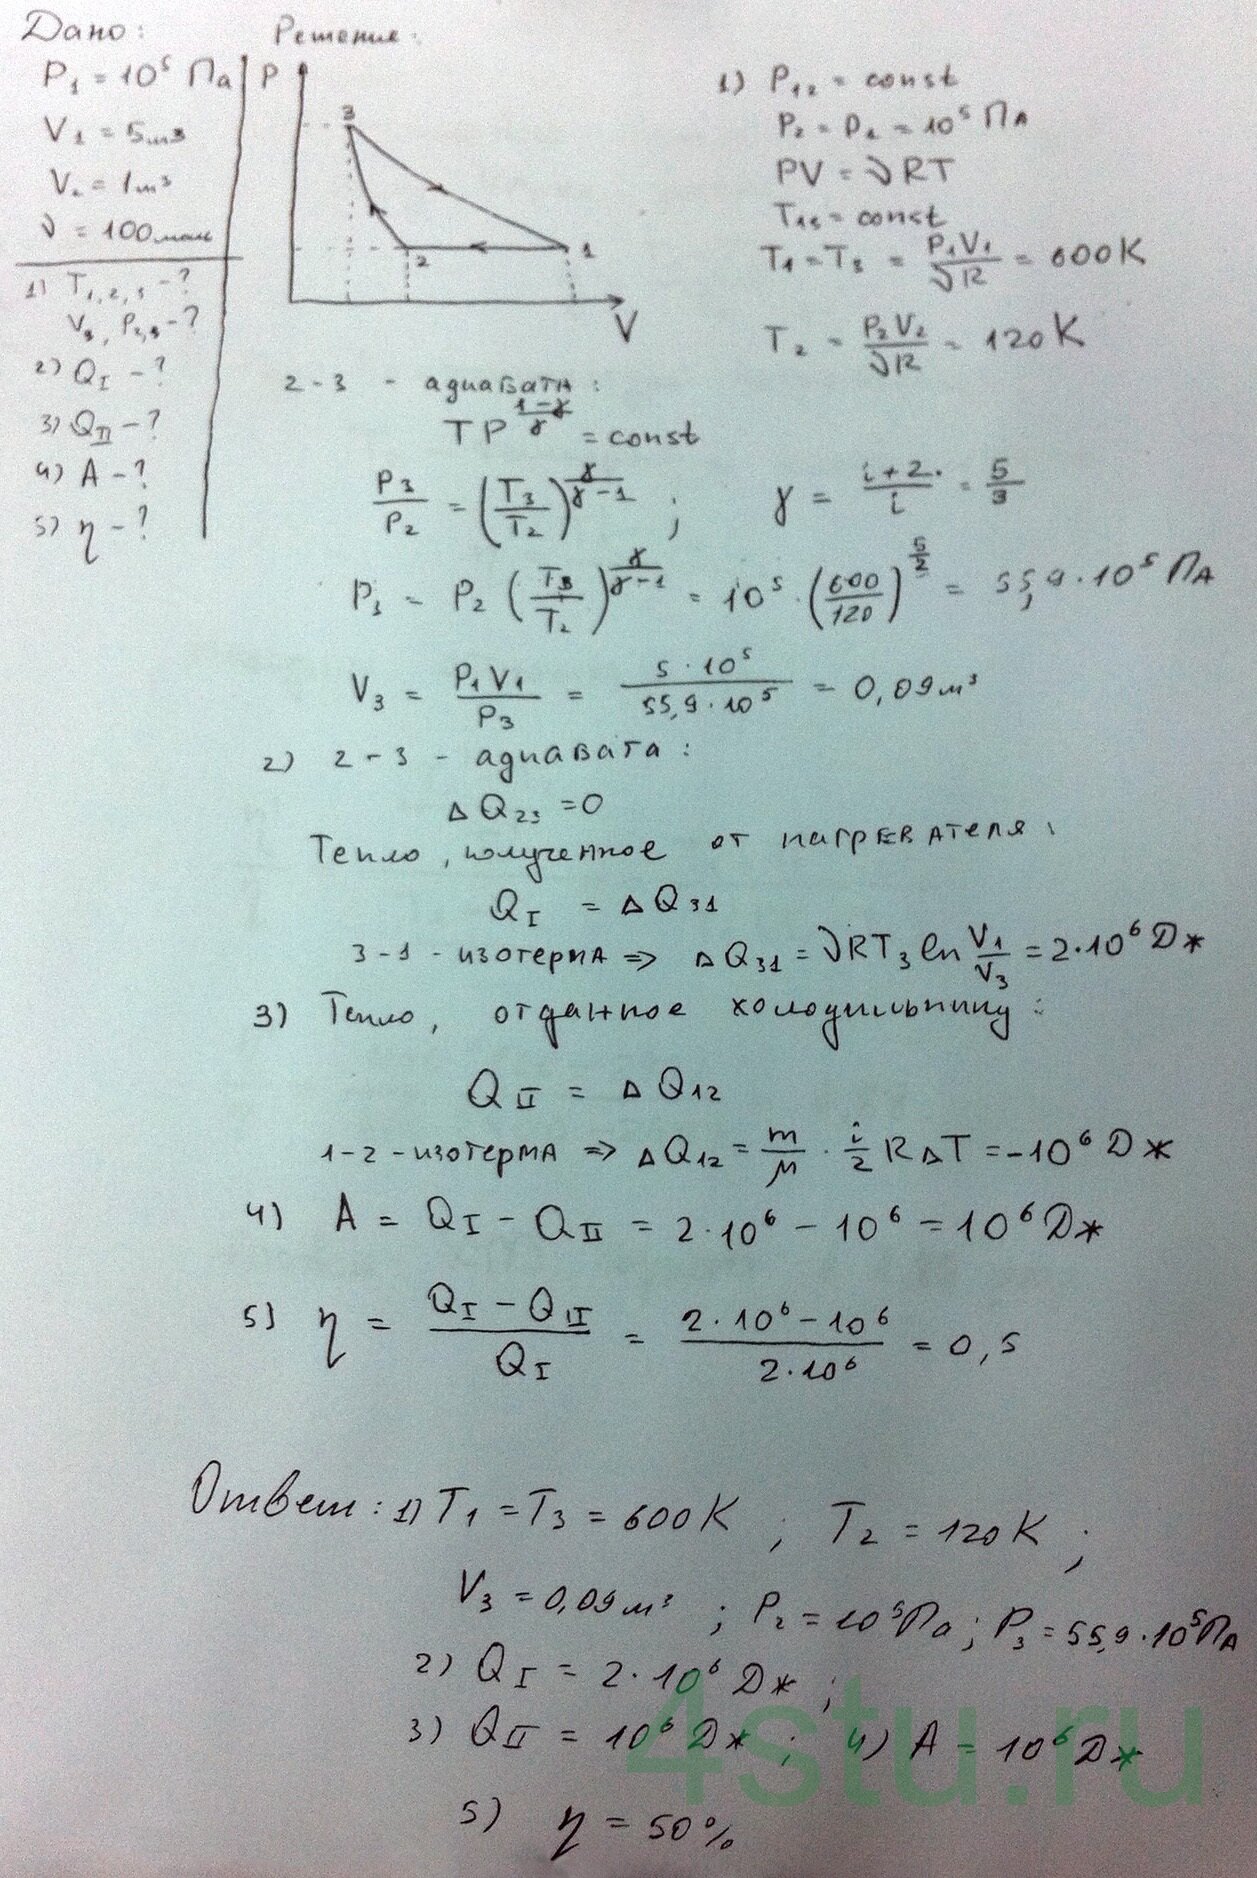 Дано:
P₁ = 10⁵ Па
V₁ = 5 м³
V₂ = 1 м³
ν = 100 моль
1) T₁,₂,₃ - ?
V₃, P₂,₃ - ?
2) Q_I - ?
3) Q_II - ?
4) A - ?
5) η - ?
Решение:
P
3
2
1
V
1) P₁₂ = const
P₂ = P₁ = 10⁵ Па
PV = νRT
T₁₃ = const
T₁ = T₃ = P₁V₁/νR = 600 K
T₂ = P₂V₂/νR = 120 K
2-3 - адиабата:
TP^((1-γ)/γ) = const
P₃/P₂ = (T₃/T₂)^(γ/(γ-1)); γ = (i+2)/i = 5/3
P₃ = P₂ (T₃/T₂)^(γ/(γ-1)) = 10⁵ · (600/120)^(5/2) = 55,9 · 10⁵ Па
V₃ = P₁V₁/P₃ = 5 · 10⁵/55,9 · 10⁵ = 0,09 м³
2) 2-3 - адиабата:
ΔQ₂₃ = 0
Тепло, полученное от нагревателя:
Q_I = ΔQ₃₁
3-1 - изотерма => ΔQ₃₁ = νRT₃ ln V₁/V₃ = 2·10⁶ Дж
3) Тепло, отданное холодильнику:
Q_II = ΔQ₁₂
1-2 - изотерма => ΔQ₁₂ = m/μ · i/2 RΔT = -10⁶ Дж
4) A = Q_I - Q_II = 2·10⁶ - 10⁶ = 10⁶ Дж
5) η = (Q_I - Q_II)/Q_I = (2·10⁶ - 10⁶)/2·10⁶ = 0,5
Ответ: 1) T₁ = T₃ = 600 K; T₂ = 120 K;
V₃ = 0,09 м³; P₂ = 10⁵ Па; P₃ = 55,9·10⁵ Па
2) Q_I = 2·10⁶ Дж;
3) Q_II = 10⁶ Дж; 4) A = 10⁶ Дж
5) η = 50%
4stu.ru